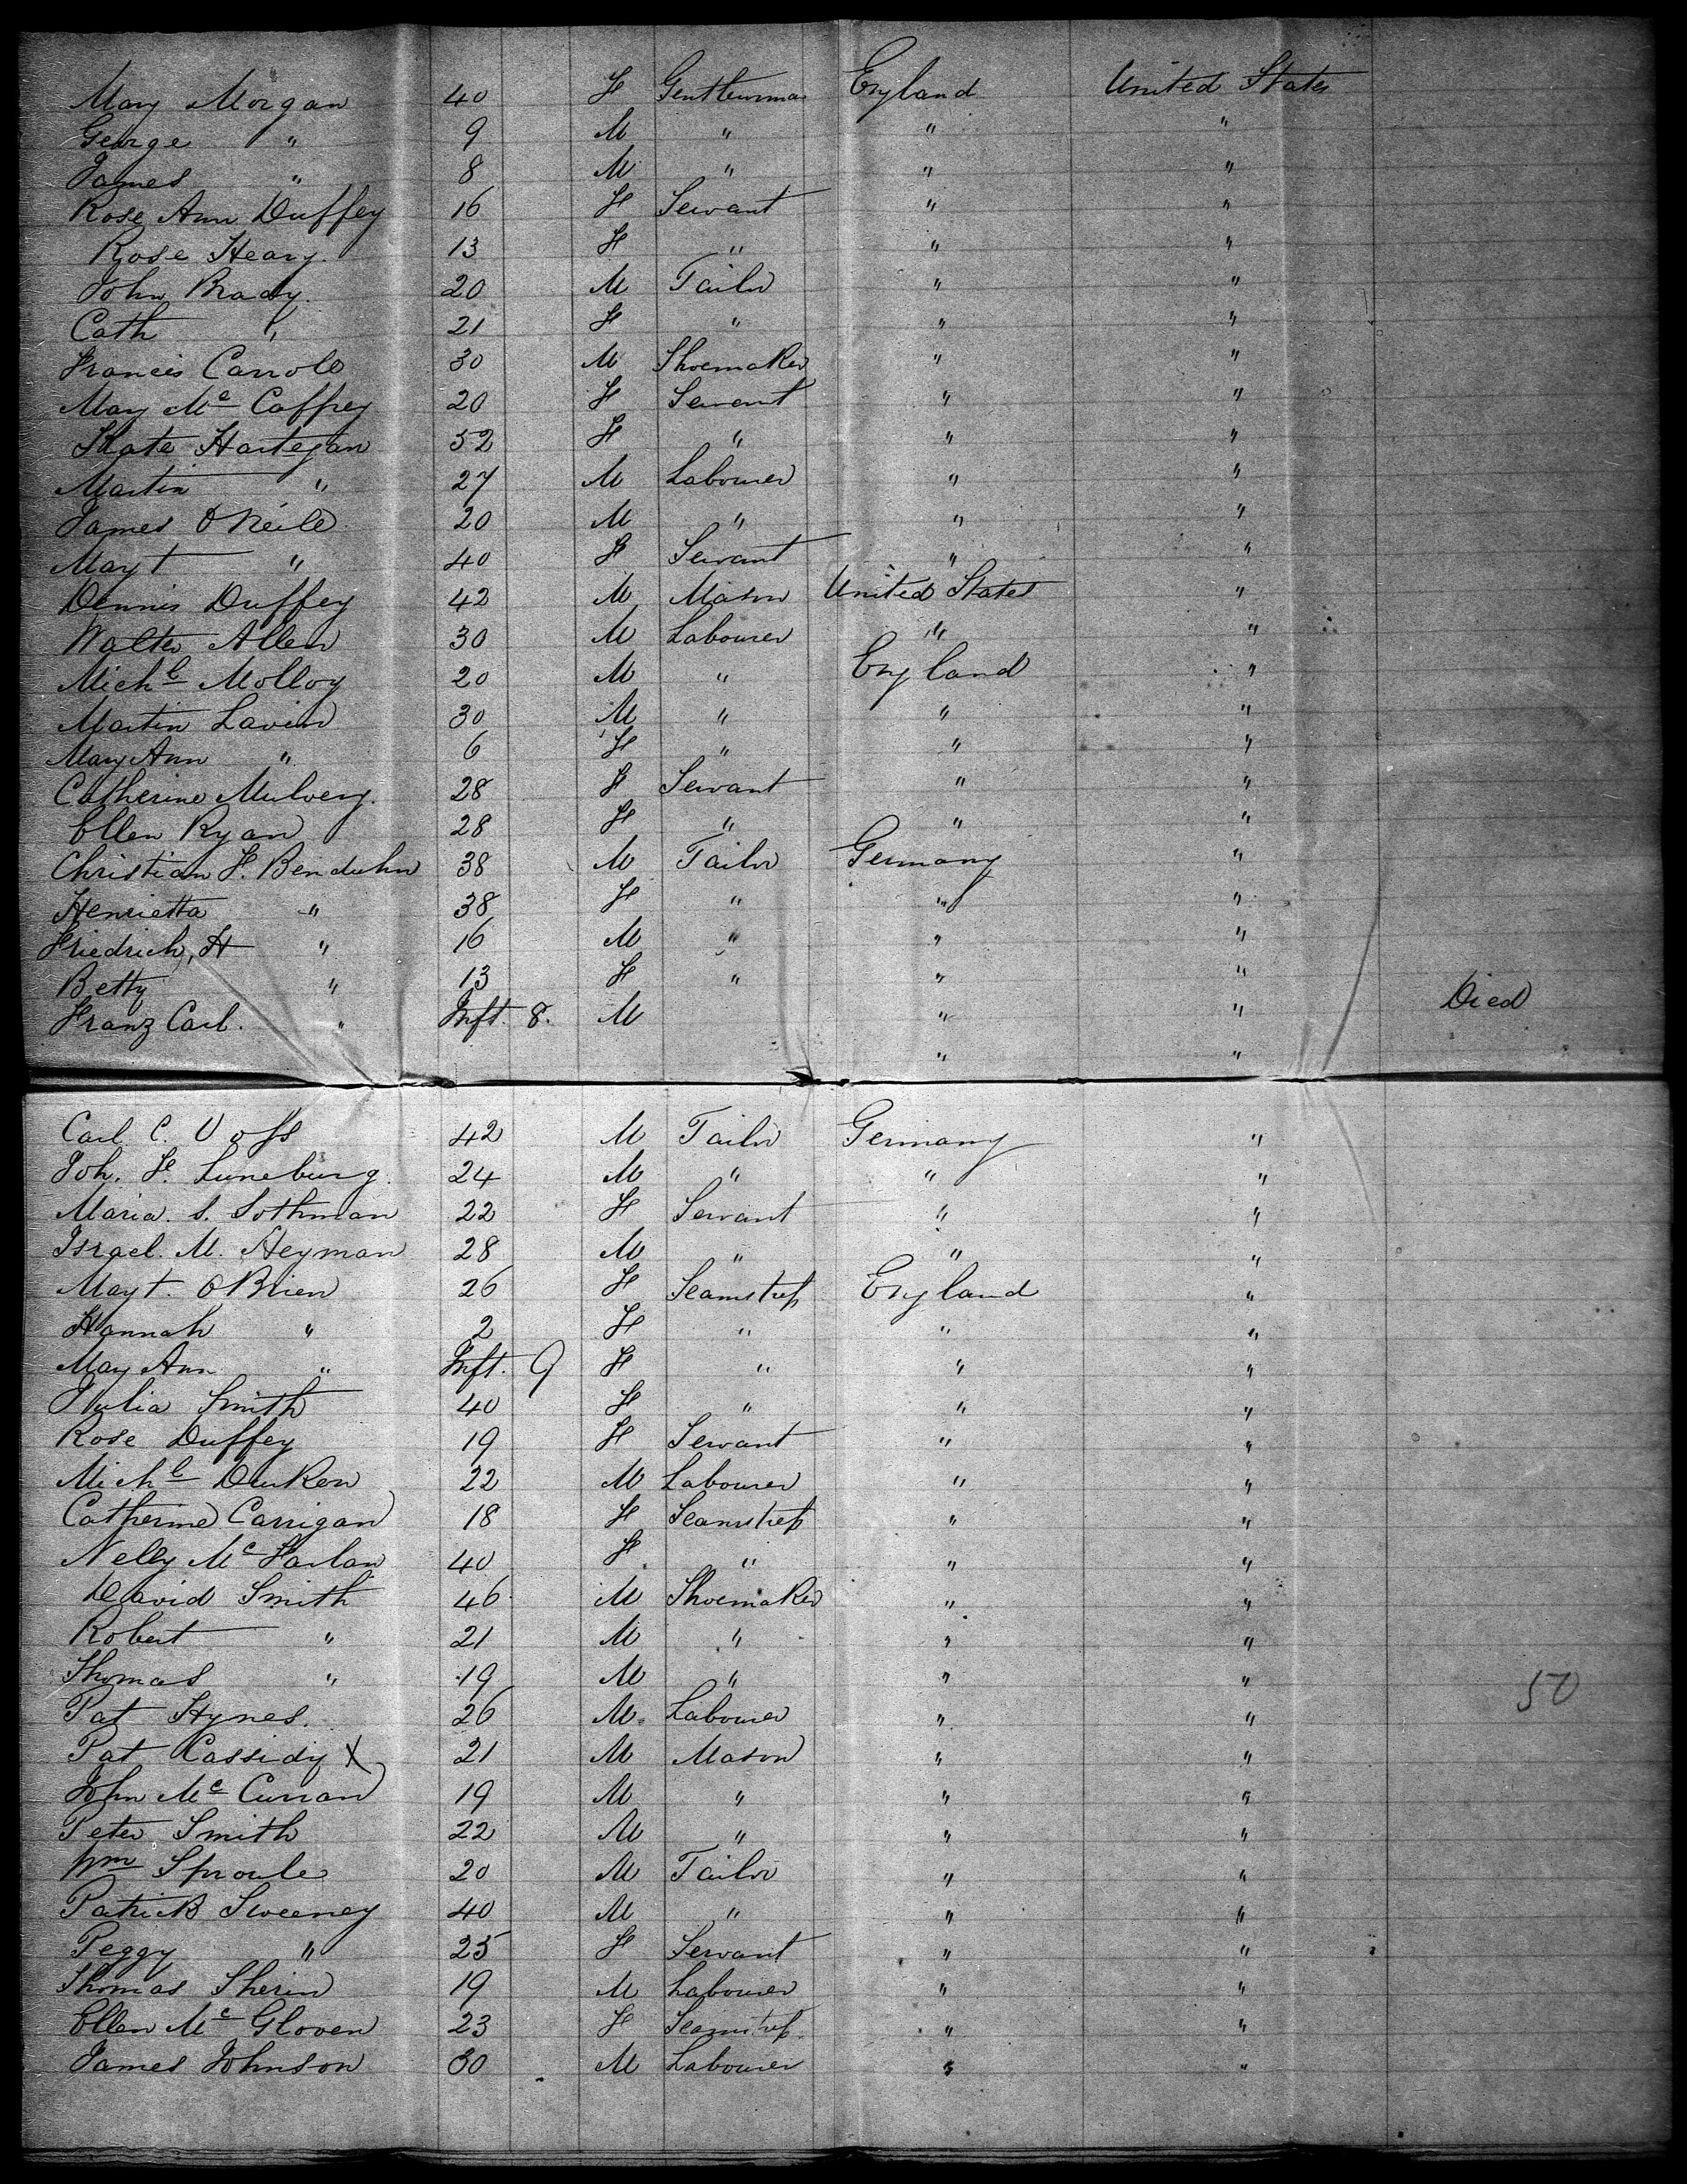 Mary Morgan 40 F Gentlewoma England United States
George " 9 M " " "
James " 8 M " " "
Rose Ann Duffey 16 F Servant " "
Rose Heary. 13 F " " "
John Brady. 20 M Tailor " "
Cath " 21 F " " "
Francis Carroll 30 M Shoemaker " "
Mary Mc Caffrey 20 F Servant " "
Kate Hartegan 52 F " " "
Martin " 27 M Labourer " "
James O'Neile 20 M " " "
Magt " 40 F Servant " "
Dennis Duffey 42 M Mason United States "
Walter Allen 30 M Labourer " "
Michl Molloy 20 M " England "
Martin Lavin 30 M " " "
Mary Ann " 6 F " " "
Catherine Mulvery. 28 F Servant " "
Ellen Ryan 28 F " " "
Christian F. Benduhn 38 M Tailor Germany "
Henrietta " 38 F " " "
Friedrich, H " 16 M " " "
Betty " 13 F " " "
Franz Carl. " Inft. 8. M " " Died
" "
Carl C. Voss 42 M Tailor Germany "
Joh. F. Luneburg. 24 M " " "
Maria. S. Sothman 22 F Servant " "
Israel. M. Heyman 28 M " " "
Magt. OBrien 26 F Seamstress England "
Hannah " 2 F " " "
Mary Ann " Inft. 9 F " " "
Julia Smith 40 F " " "
Rose Duffey 19 F Servant " "
Michl Durken 22 M Labourer " "
Catherine Carrigan 18 F Seamstress " "
Nelly Mc Farlan 40 F " " "
David Smith 46 M Shoemaker " "
Robert " 21 M " " "
Thomas " 19 M " " "
50
Pat Hynes. 26 M Labourer " "
Pat Cassidy X 21 M Mason " "
John Mc Curran 19 M " " "
Peter Smith 22 M " " "
Wm Sproule 20 M Tailor " "
Patrick Sweeney 40 M " " "
Peggy " 25 F Servant " "
Thomas Sherin 19 M Labourer " "
Ellen Mc Gloven 23 F Seamstress. " "
James Johnson 30 M Labourer " "